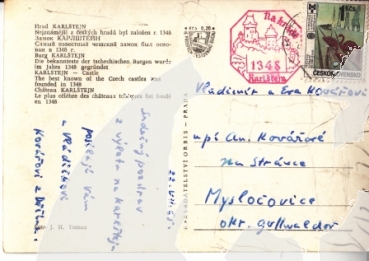 Hrad KARLŠTEJN
Nejznámější z českých hradů byl založen r. 1348
Замок КАРЛШТЕЙН
Самый известный чешский замок был основан в 1348 г.
Burg KARLŠTEJN
Die bekannteste der tschechischen Burgen wurde
im Jahre 1348 gegründet
KARLŠTEJN — Castle
The best known of the Czech castles was
founded in 1348
Château KARLŠTEJN
Le plus célèbre des châteaux tchèques fut fondé
en 1348
Srdečný pozdrav
z výletu na Karlštejn
posílají vám
a Vladíčkovi
Kovářovi z
ORBIS - PRAHA
Na hradě
1348
Karlštejn
ČESKOSLOVENSKO
Vladimír a Eva Kovářovi
u pí An. Kovářové
na Stránce
Mysločovice
okr. Gottwaldov